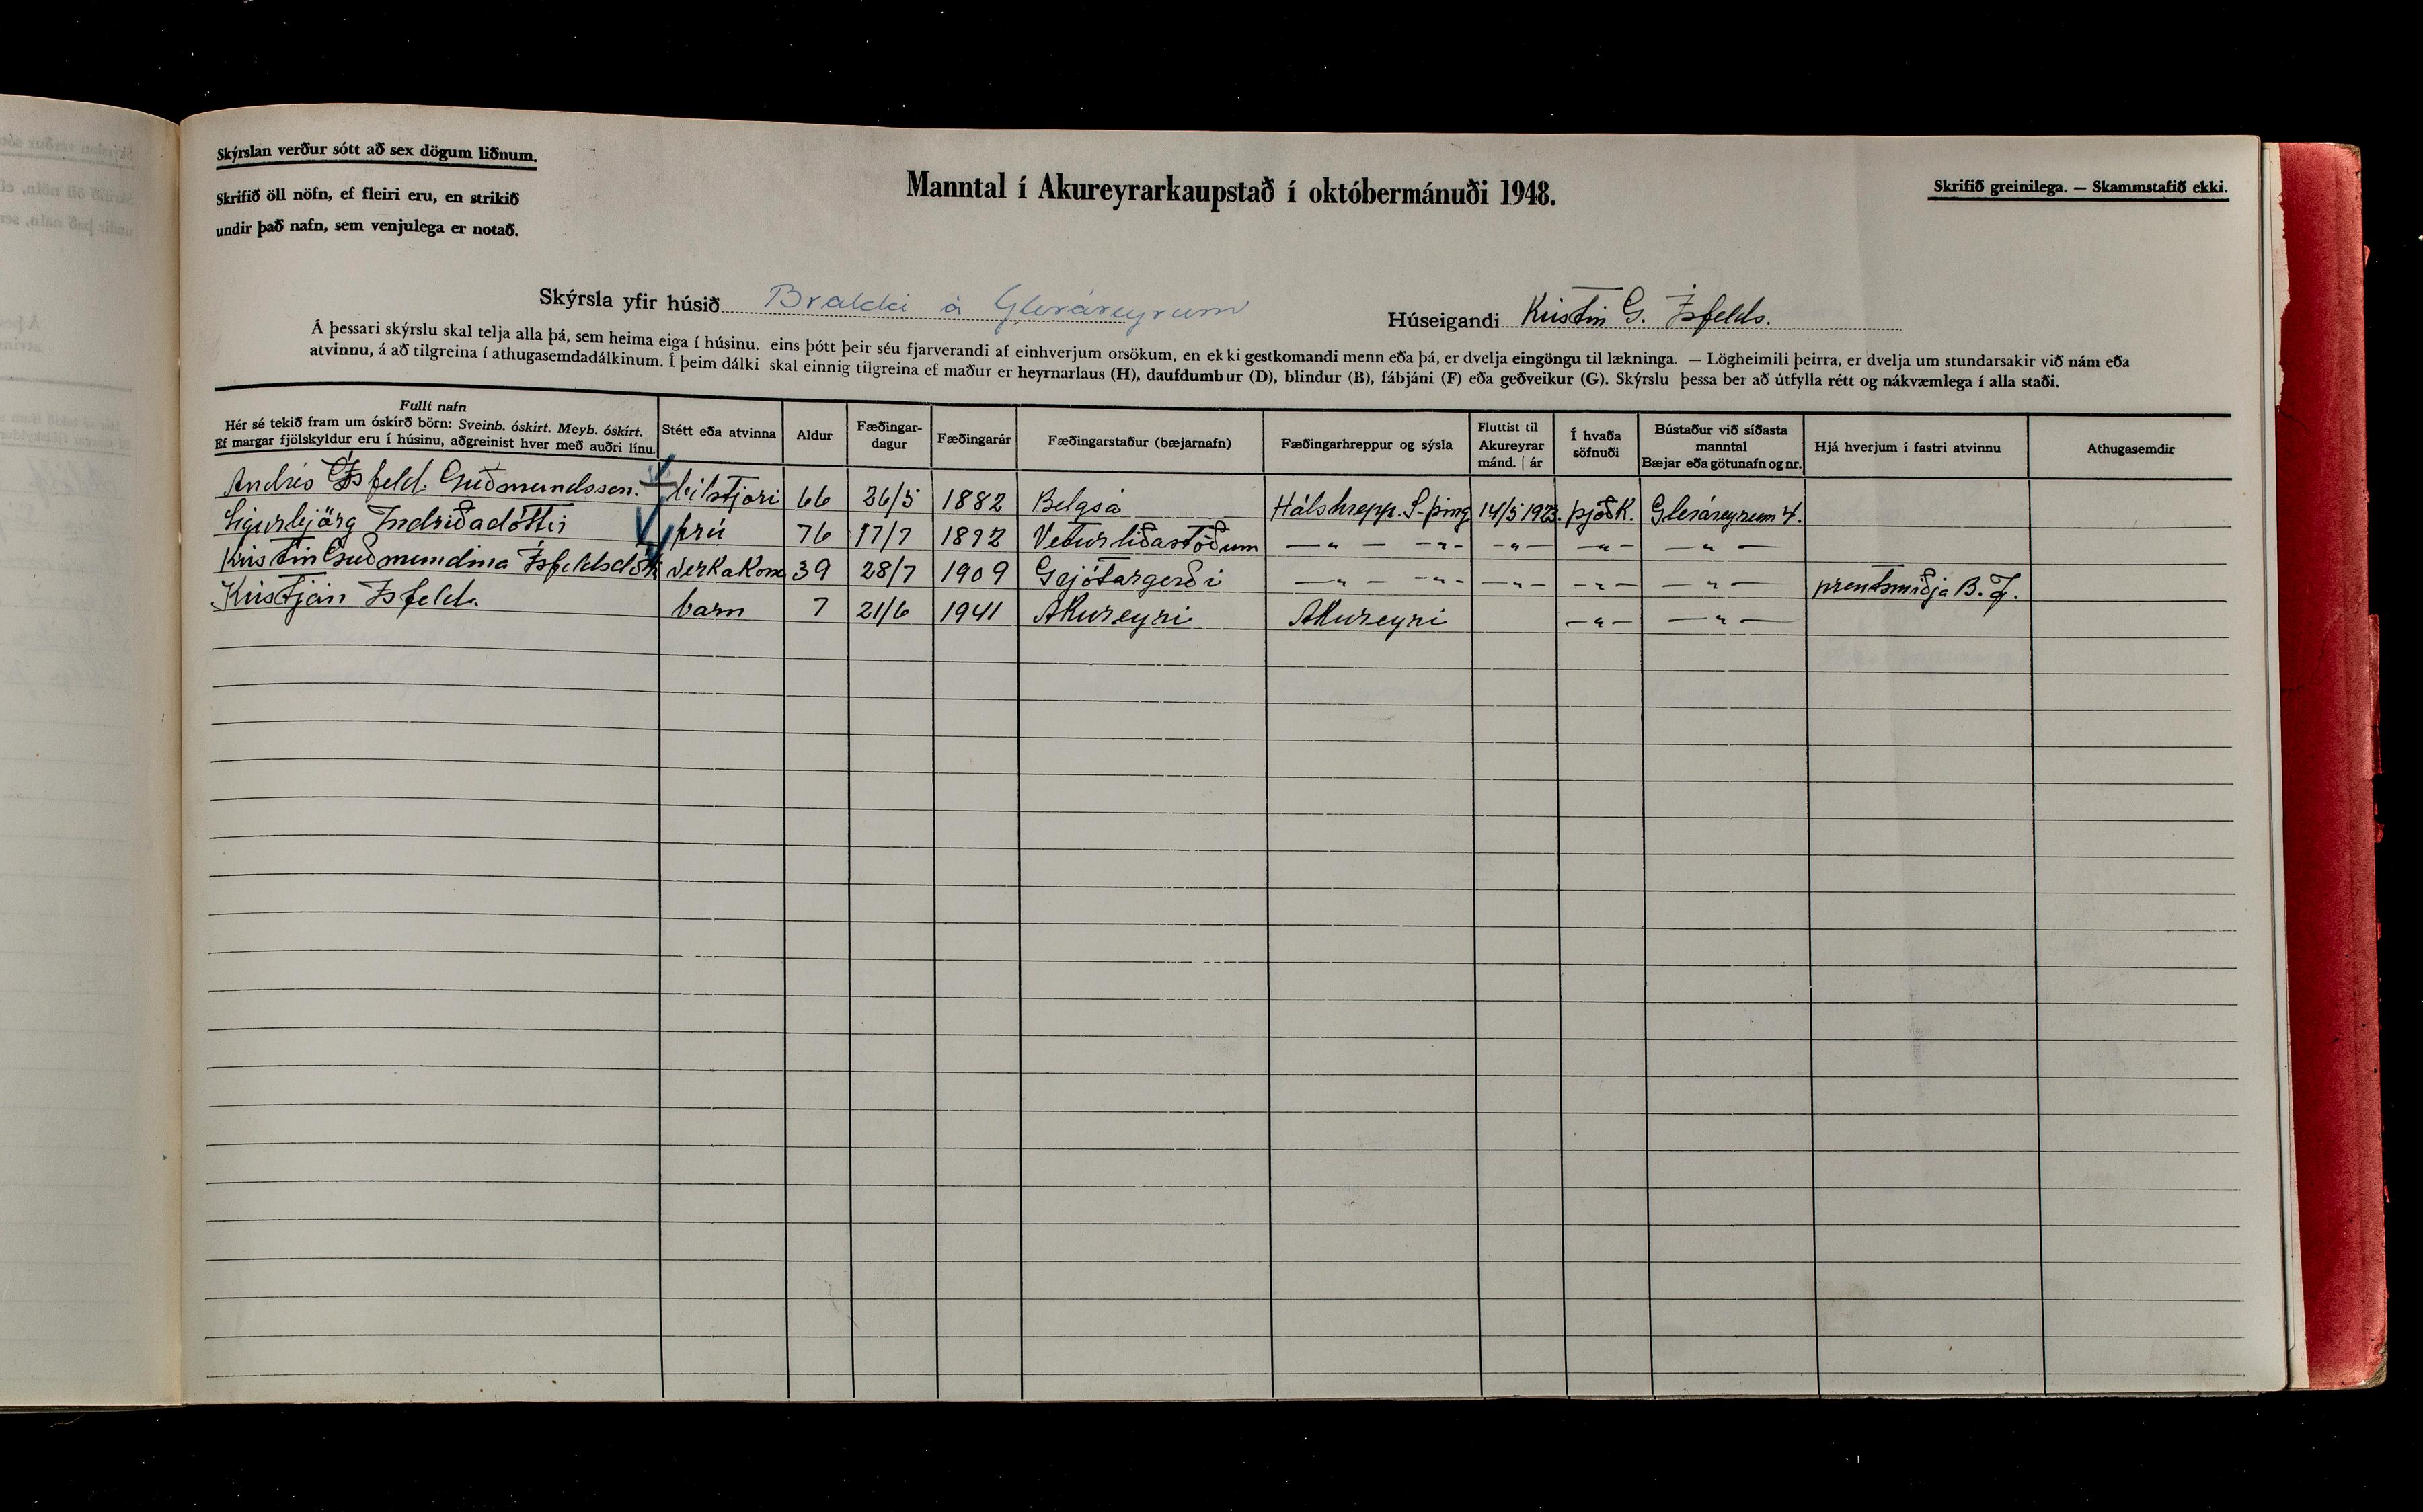 Skýrslan verður sótt að sex dögum liðnum.
Skrifið öll nöfn, ef fleiri eru, en strikið
undir það nafn, sem venjulega er notað.
Manntal í Akureyrarkaupstað í októbermánuði 1948.
Skrifið greinilega. — Skammstafið ekki.
Skýrsla yfir húsið á Gleráreyrum Húseigandi Kristín G. Ísfelds.
Á þessari skýrslu skal telja alla þá, sem heima eiga í húsinu, eins þótt þeir séu fjarverandi af einhverjum orsökum, en ekki gestkomandi menn eða þá, er dvelja eingöngu til lækninga. — Lögheimili þeirra, er dvelja um stundarsakir við nám eða
atvinnu, á að tilgreina í athugasemdadálkinum. Í þeim dálki skal einnig tilgreina ef maður er heyrnarlaus (H), daufdumbur (D), blindur (B), fábjáni (F) eða geðveikur (G). Skýrslu þessa ber að útfylla rétt og nákvæmlega í alla staði.
Fullt nafn
Hér sé tekið fram um óskírð börn: Sveinb. óskírt. Meyb. óskírt.
Ef margar fjölskyldur eru í húsinu, aðgreinist hver með auðri línu.
Stétt eða atvinna
Aldur
Fæðingar-
dagur
Fæðingarár
Fæðingarstaður (bæjarnafn)
Fæðingarhreppur og sýsla
Fluttist til
Akureyrar
mánd. | ár
Í hvaða
söfnuði
Bústaður við síðasta
manntal
Bæjar eða götunafn og nr.
Hjá hverjum í fastri atvinnu
Athugasemdir
Andrés Ísfeld Guðmundsson. bílstjóri 66 26/5 1882 Belgsá Hálshrepp. S-þing 14/5 1923. þjóðk. Gleráreyrum 4.
Sigurbjörg Indriðadóttir frú 76 17/7 1872 Veturliðastöðum —"— -"- -"- -"- —"—
Kristín Guðmundína Ísfeldsdótt verkakona 39 28/7 1909 Grjótargerði —"— -"- —"- -"- —"— prentsmiðja B. J.
Kristján Ísfeld. barn 7 21/6 1941 Akureyri Akureyri -"- —"—